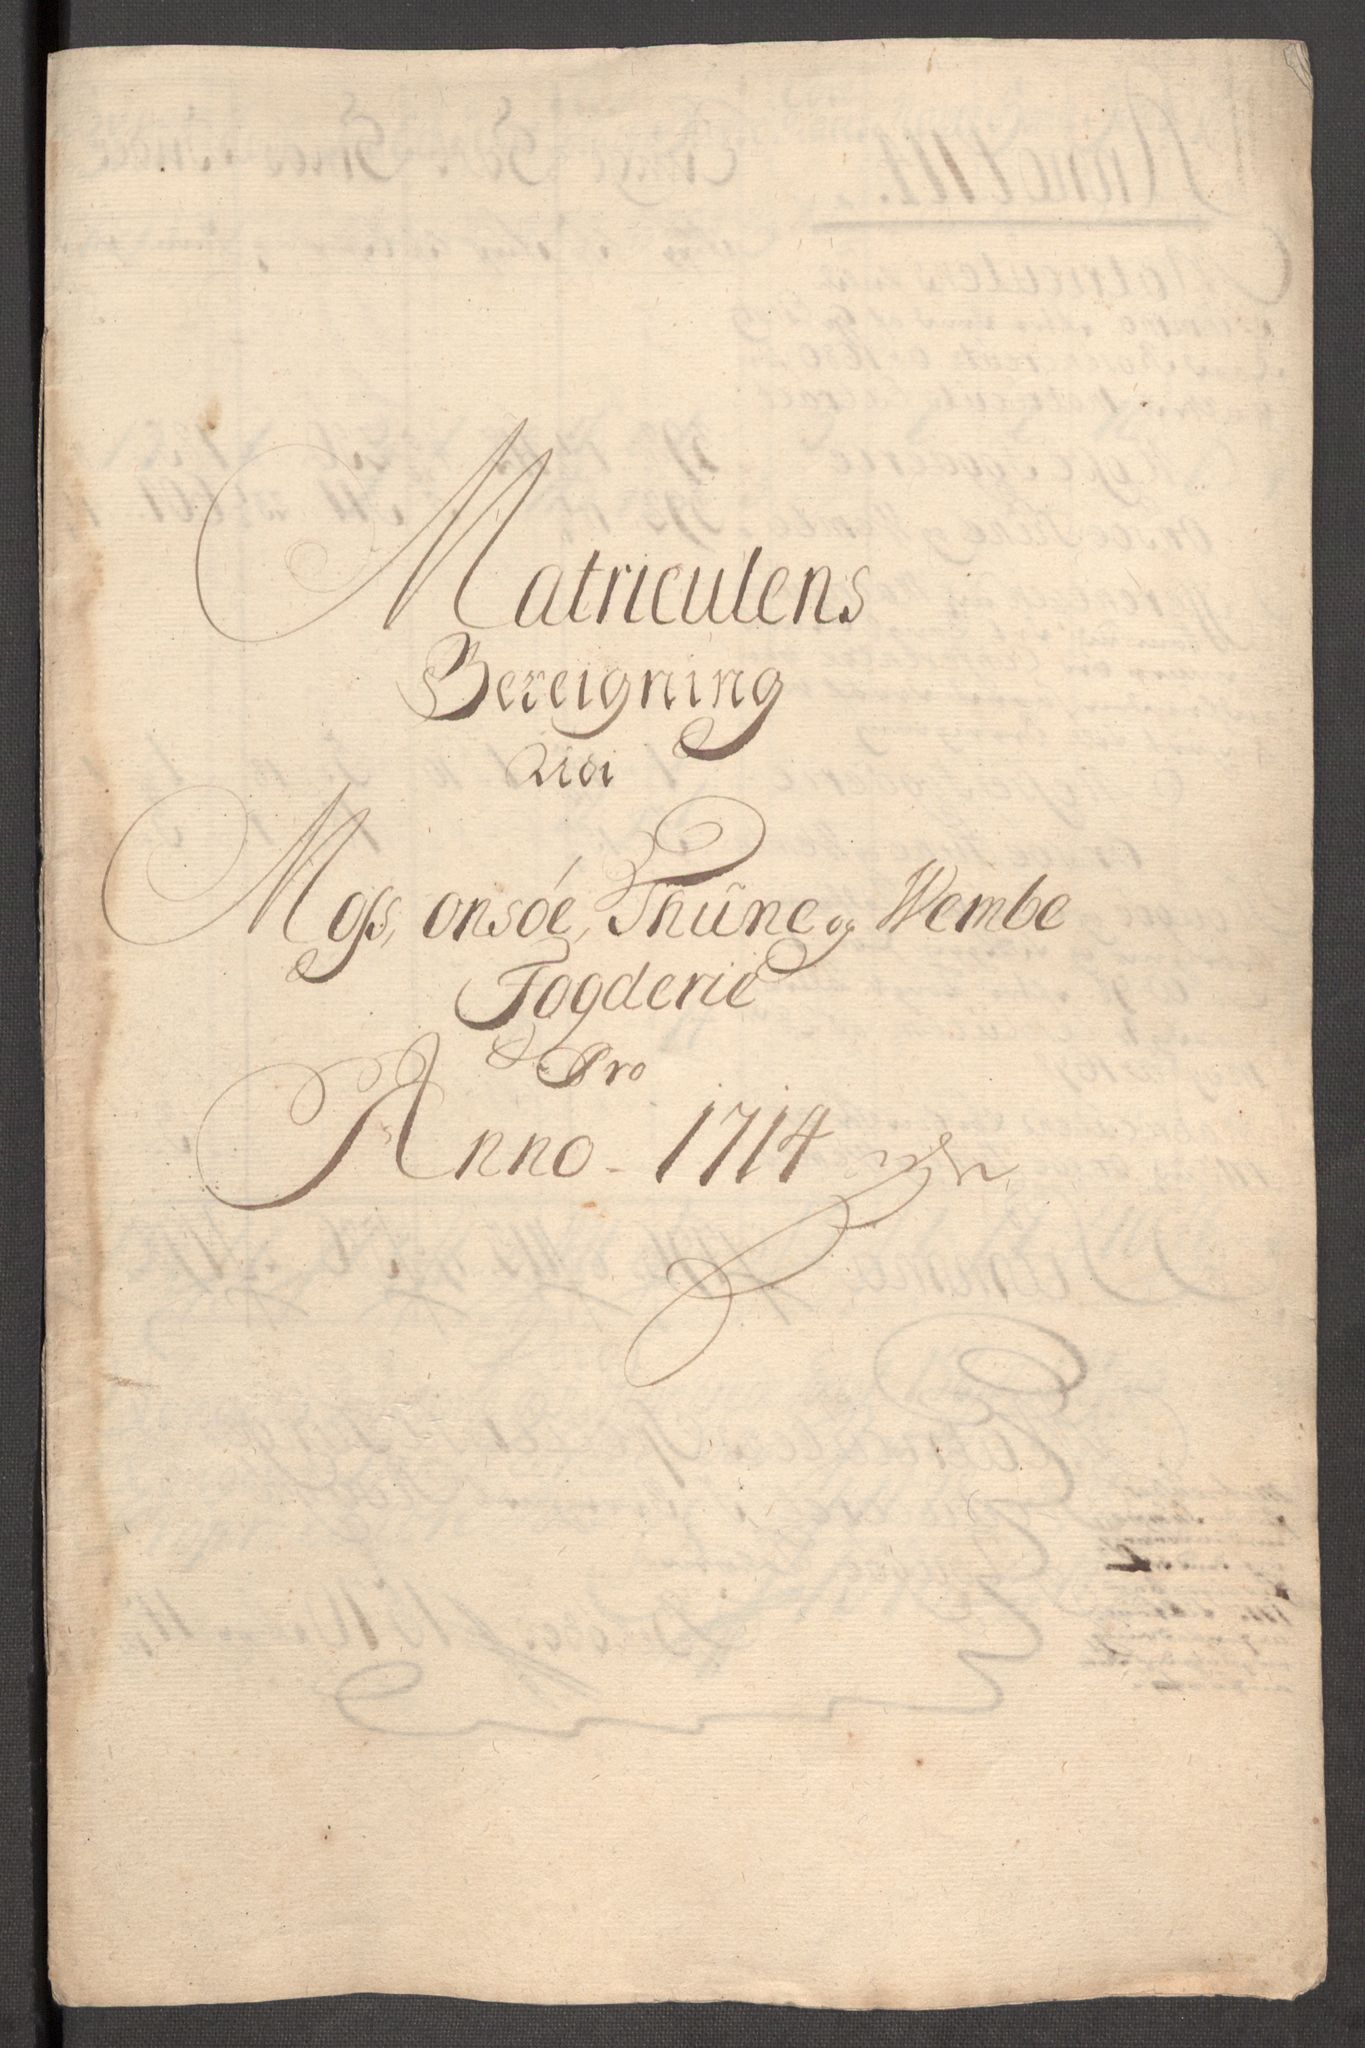 Matriculens
Bereigning
over
Moss, onsöe, Thüne og Wembe
Fogderie
Pro
Anno - 1714